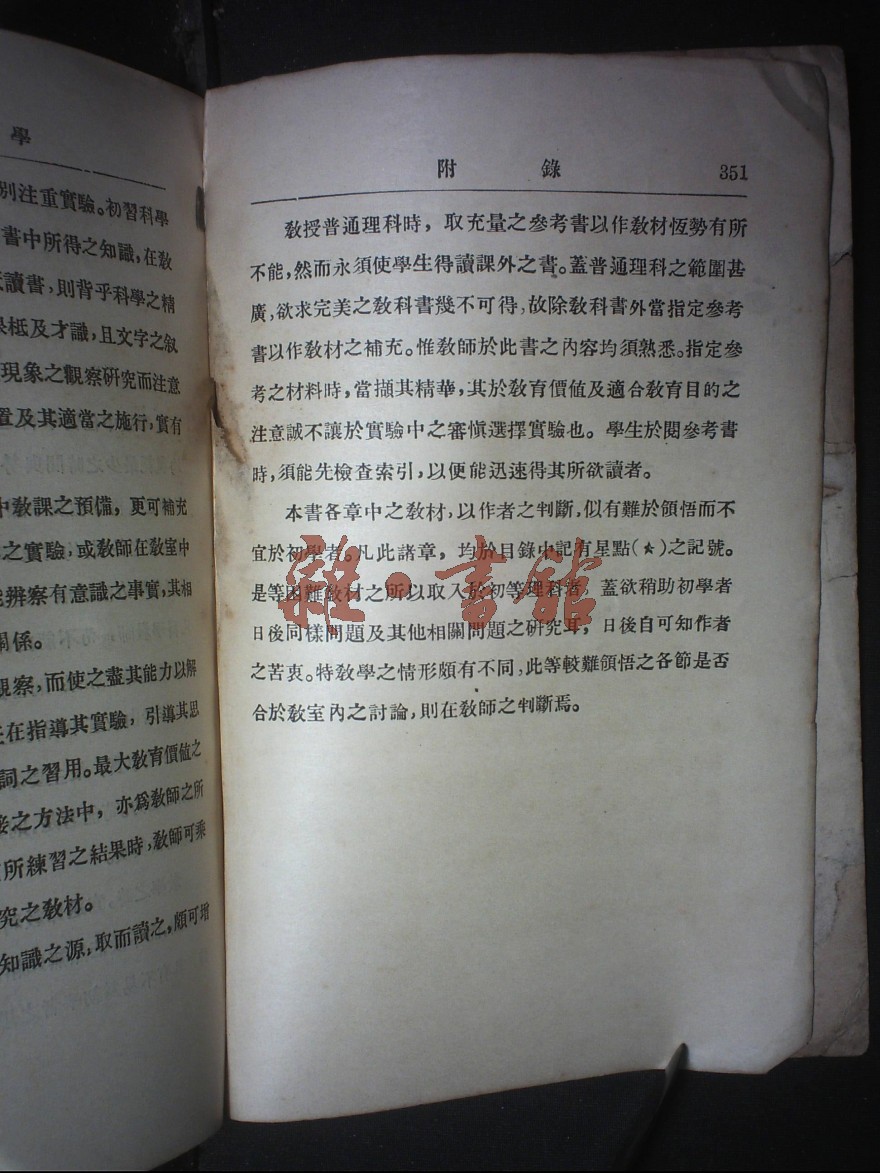 學
別注重實驗。初習科學
書中所得之知識,在敎
讀書,則背乎科學之精
柢及才識,且文字之叙
現象之觀察硏究而注意
置及其適當之施行,實有
中敎課之預備,更可補充
之實驗,或敎師在敎室中
辨察有意識之事實,其相
關係。
觀察,而使之盡其能力以解
在指導其實驗,引導其思
詞之習用。最大敎育價値之
接之方法中,亦爲敎師之所
所練習之結果時,敎師可乘
究之敎材。
知識之源,取而讀之,頗可增
附錄 351
敎授普通理科時,取充量之參考書以作敎材恆勢有所
不能,然而永須使學生得讀課外之書。蓋普通理科之範圍甚
廣,欲求完美之敎科書幾不可得,故除敎科書外當指定參考
書以作敎材之補充。惟敎師於此書之內容均須熟悉。指定參
考之材料時,當擷其精華,其於敎育價値及適合敎育目的之
注意誠不讓於實驗中之審愼選擇實驗也。學生於閱參考書
時,須能先檢查索引,以便能迅速得其所欲讀者。
本書各章中之敎材,以作者之判斷,似有難於領悟而不
宜於初學者。凡此諸章,均於目錄中記有星點(★)之記號。
是等困難敎材之所以取入於初等理科者,蓋欲稍助初學者
日後同樣問題及其他相關問題之硏究耳,日後自可知作者
之苦衷。特敎學之情形頗有不同,此等較難領悟之各節是否
合於敎室內之討論,則在敎師之判斷焉。
雜·書館